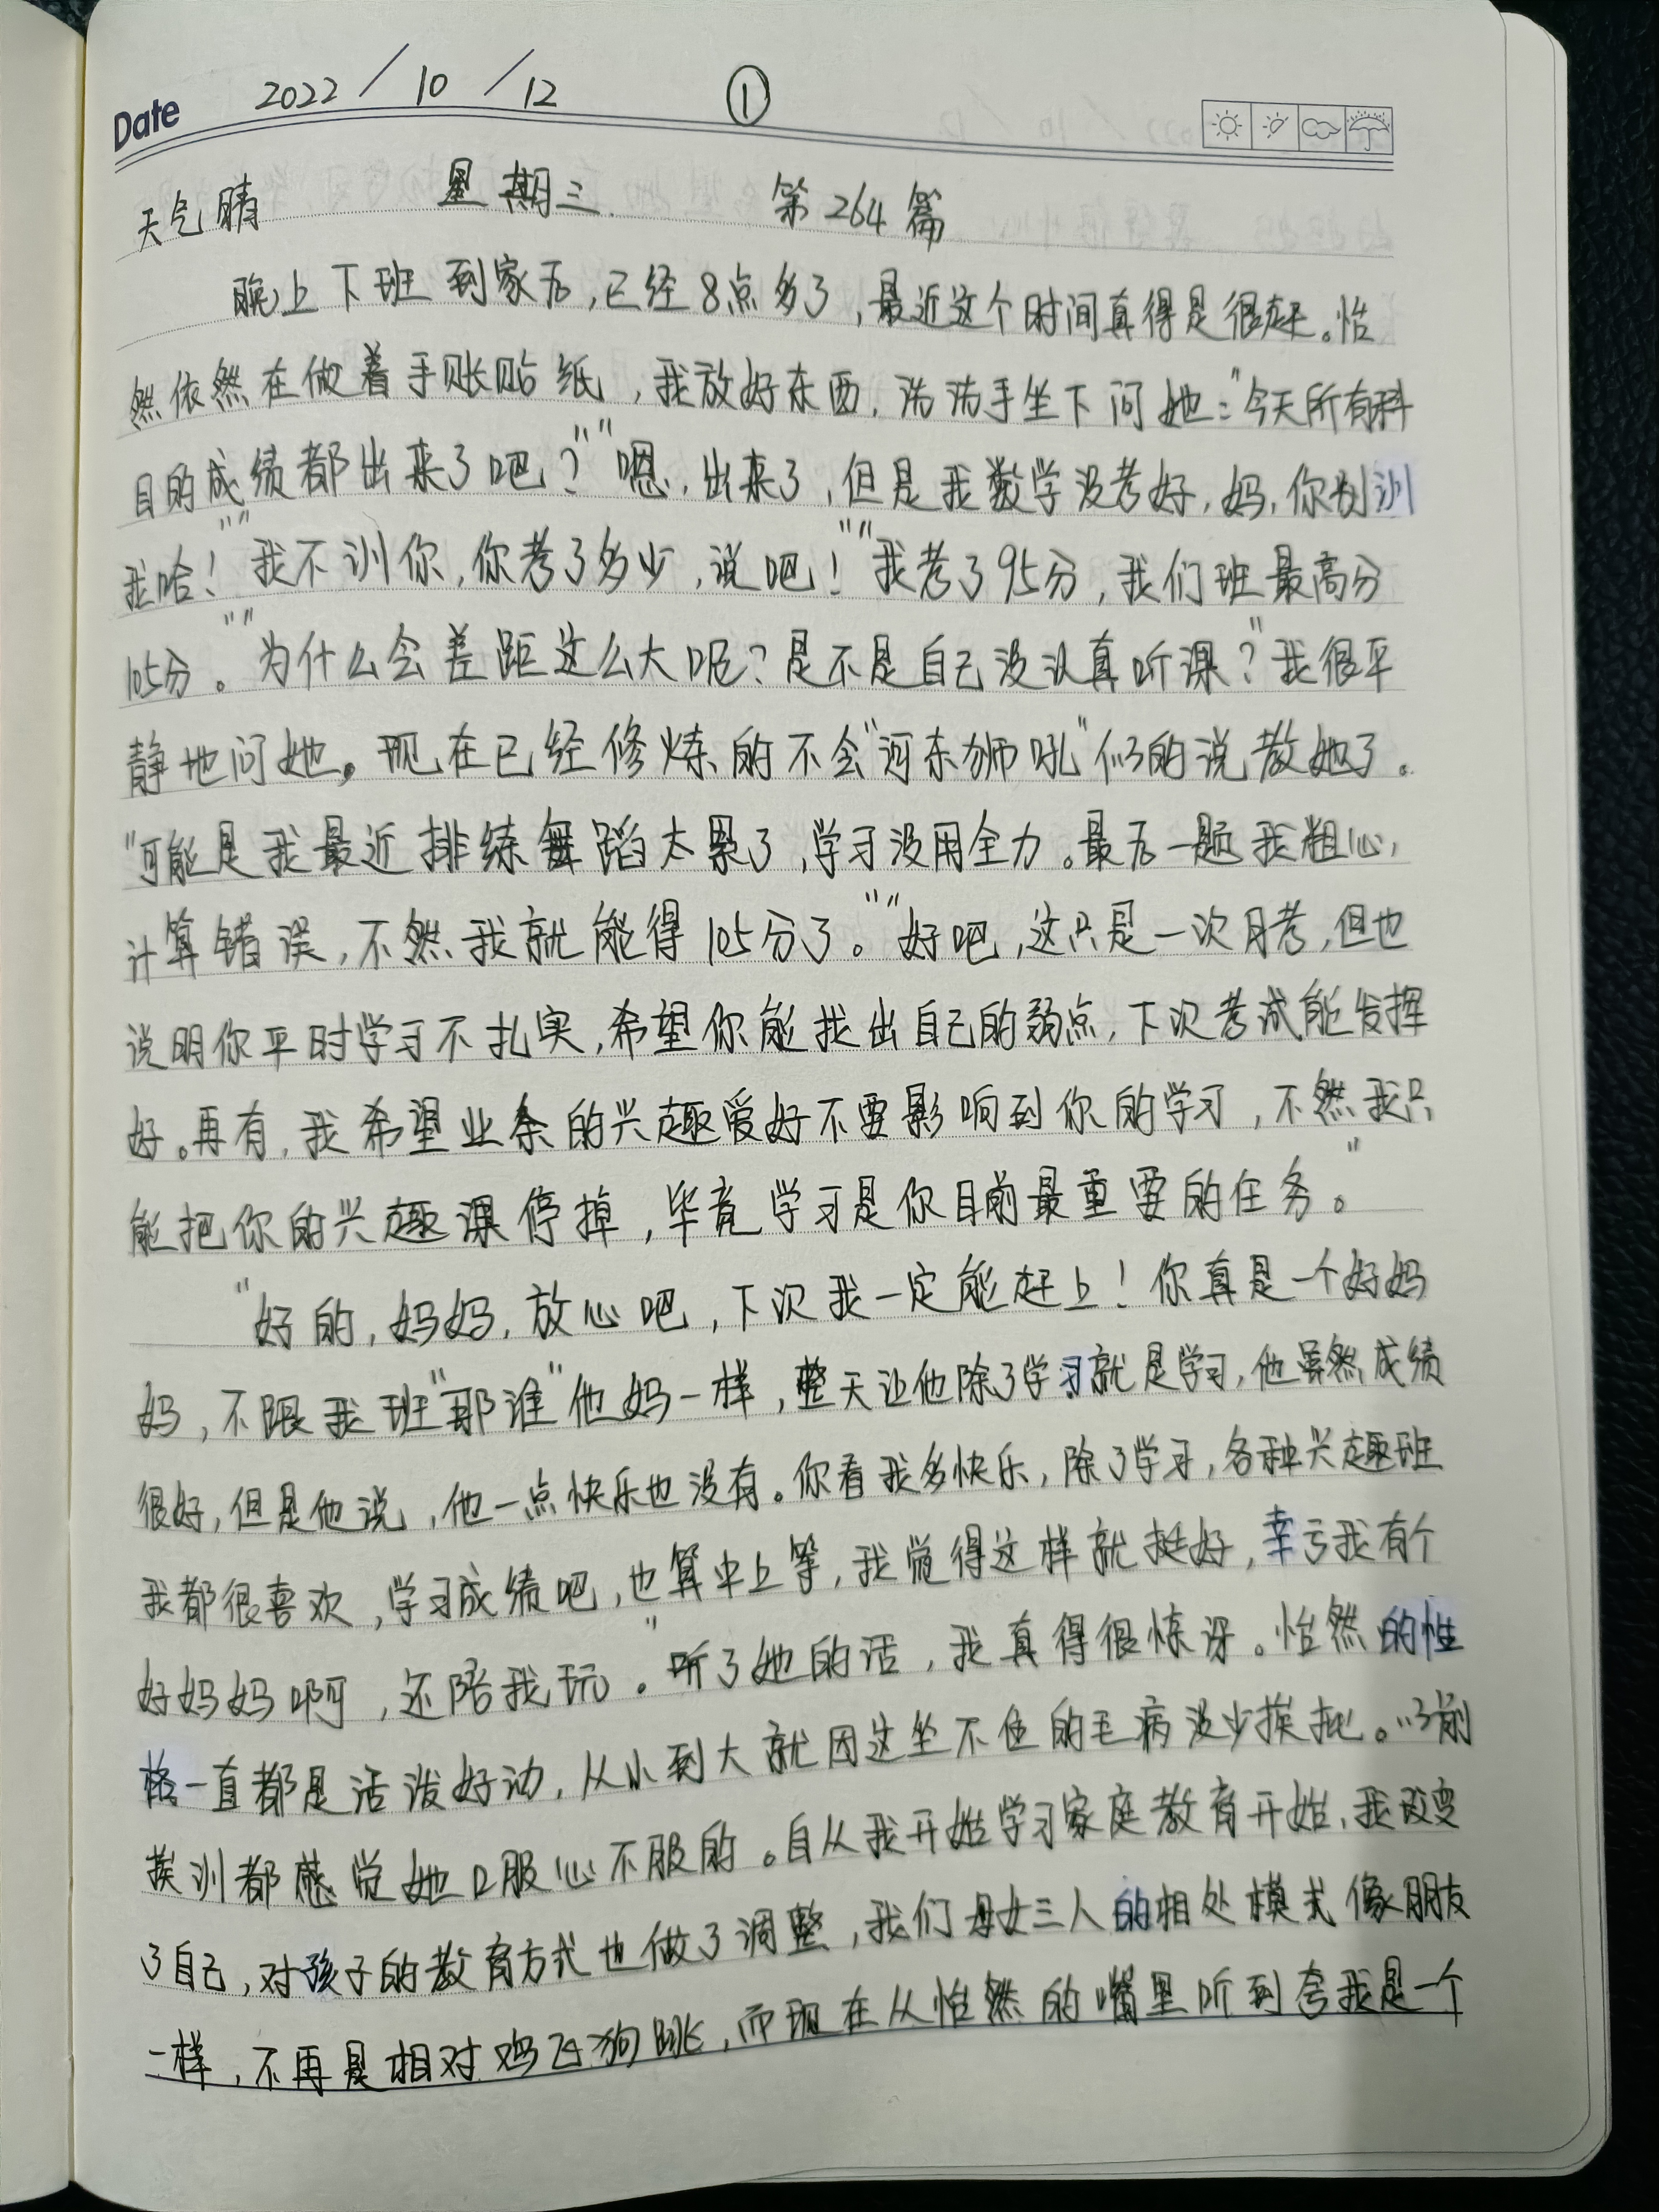 Date 2022/10/12 ①
天气晴 星期三 第264篇
晚上下班到家后，已经8点多了，最近这个时间真得是很赶。怡
然依然在做着手账贴纸，我放好东西，洗洗手坐下问她："今天所有科
目的成绩都出来了吧？""嗯，出来了，但是我数学没考好，妈，你别训
我哈！""我不训你，你考了多少，说吧！""我考了95分，我们班最高分
105分。""为什么会差距这么大呢？是不是自己没认真听课？"我很平
静地问她。现在已经修炼的不会"河东狮吼"似的说教她了。
"可能是我最近排练舞蹈太累了，学习没用全力。最后一题我粗心，
计算错误，不然我就能得105分了。""好吧，这只是一次月考，但也
说明你平时学习不扎实，希望你能找出自己的弱点，下次考试能发挥
好。再有，我希望业余的兴趣爱好不要影响到你的学习，不然我只
能把你的兴趣课停掉，毕竟学习是你目前最重要的任务。"
"好的，妈妈，放心吧，下次我一定能赶上！你真是一个好妈
妈，不跟我班"那谁"他妈一样，整天让他除了学习就是学习，他虽然成绩
很好，但是他说，他一点快乐也没有。你看我多快乐，除了学习，各种兴趣班
我都很喜欢，学习成绩吧，也算中上等，我觉得这样就挺好，幸亏我有个
好妈妈啊，还陪我玩。"听了她的话，我真得很惊讶。怡然的性
格一直都是活泼好动，从小到大就因这坐不住的毛病没少挨批。以前
挨训都感觉她口服心不服的。自从我开始学习家庭教育开始，我改变
了自己，对孩子的教育方式也做了调整，我们母女三人的相处模式像朋友
一样，不再是相对鸡飞狗跳，而现在从怡然的嘴里听到夸我是一个